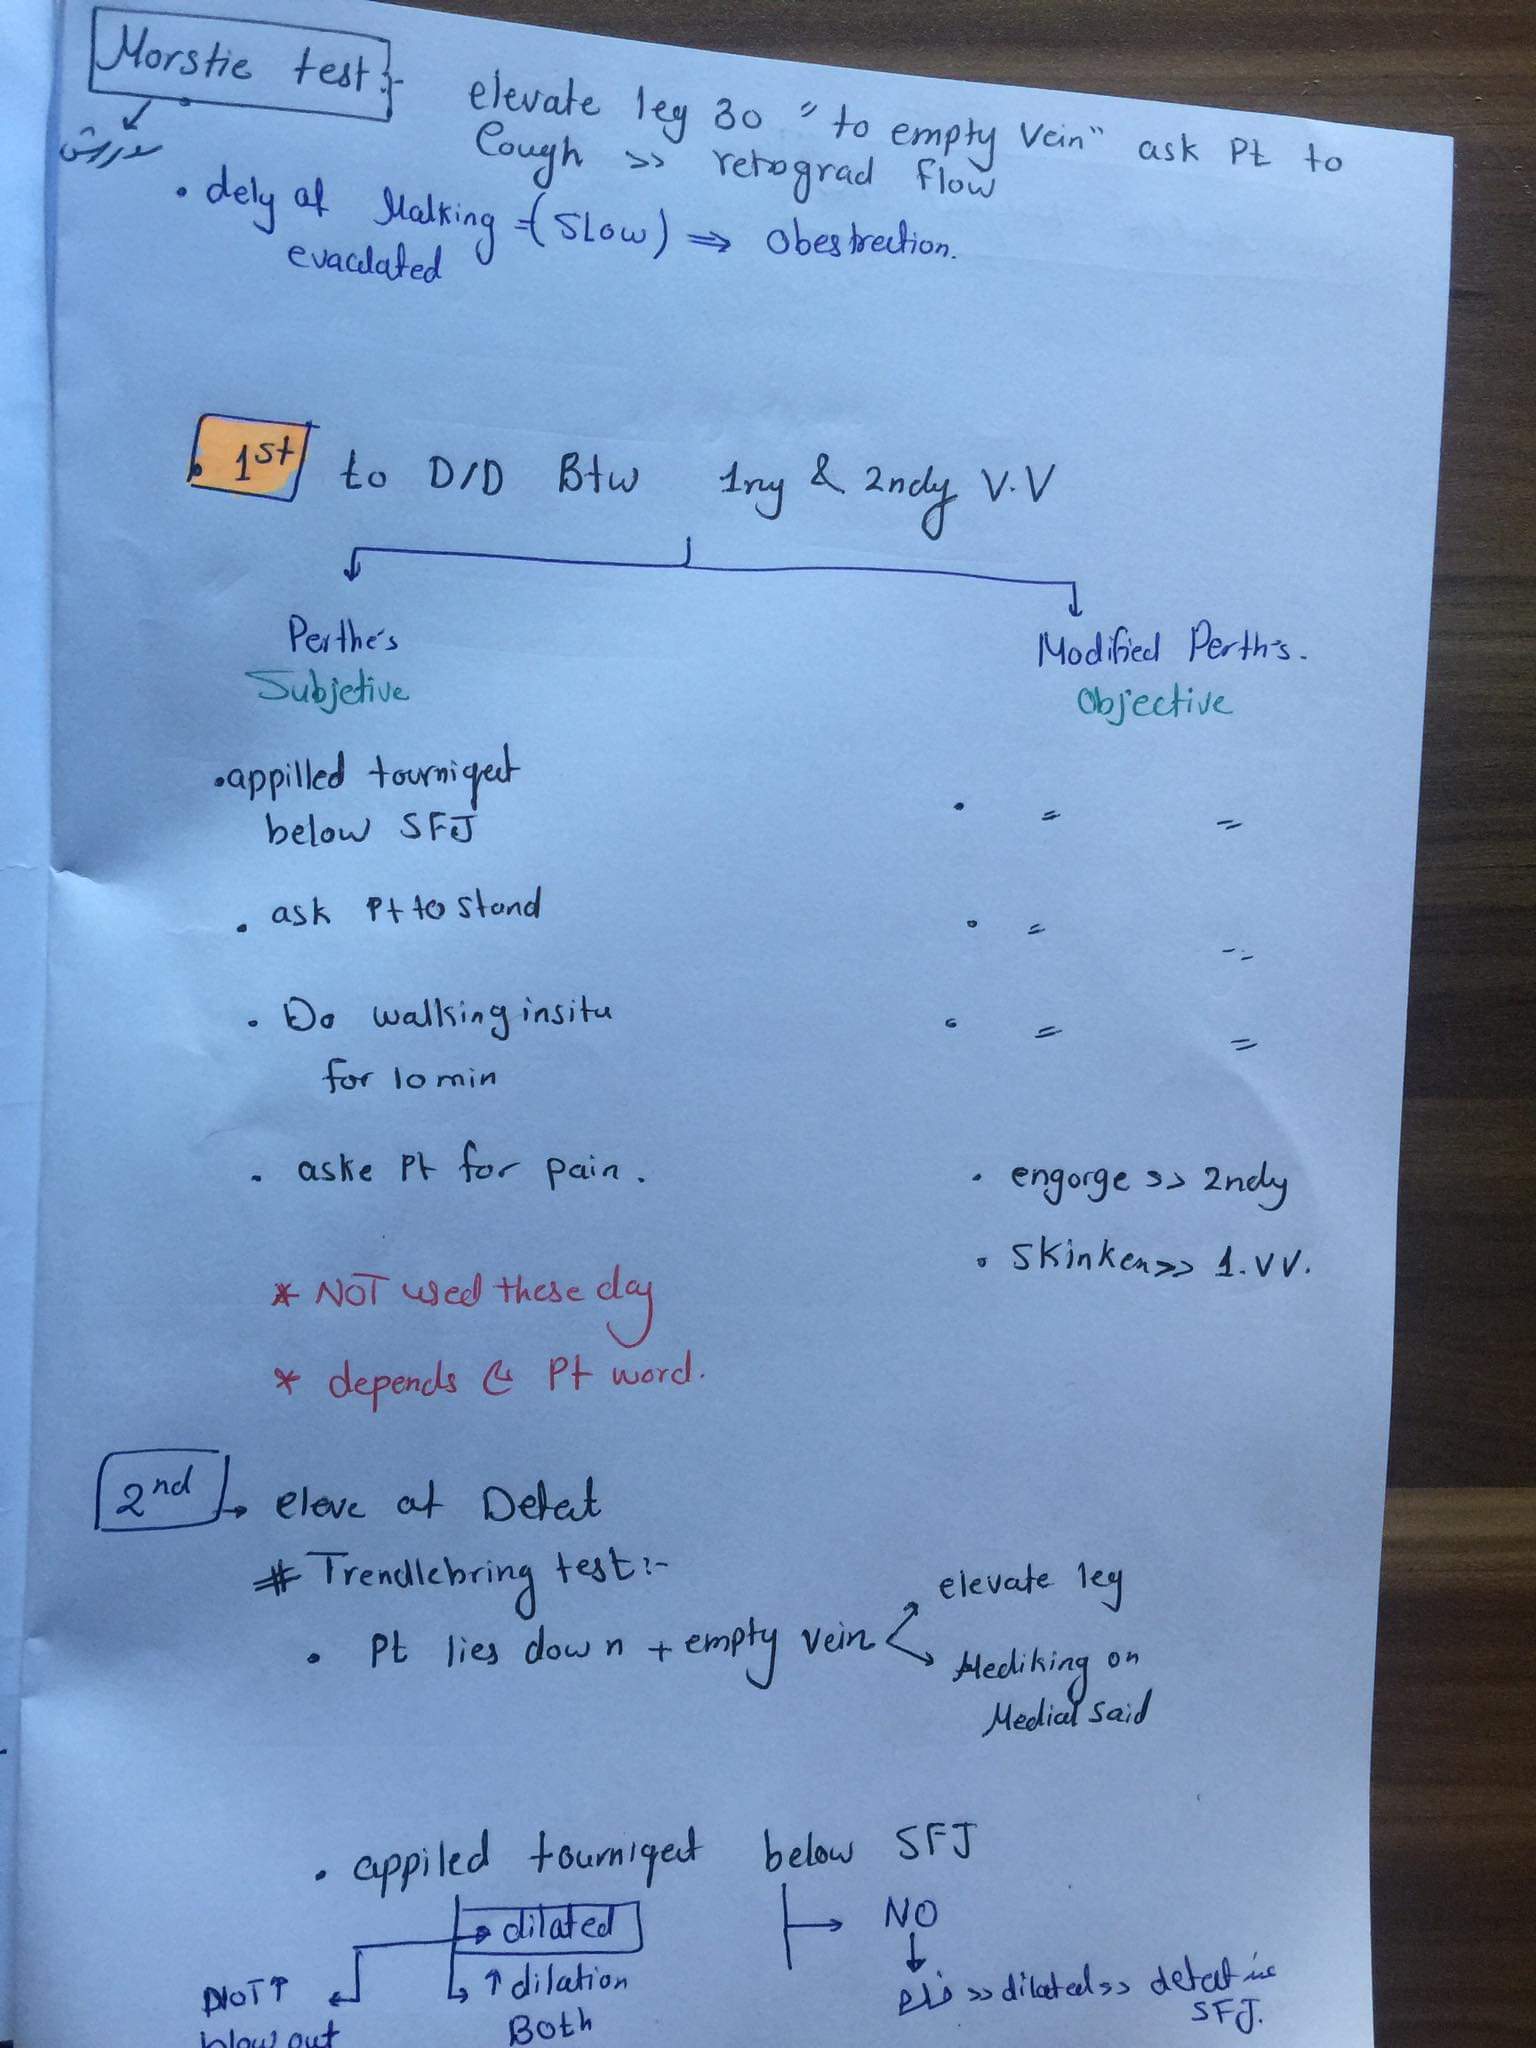 Morstie test:-
elevate leg 30 "to empty vein" ask Pt to
Cough >> retograd flow
• dely of Malking =(SLow) ⇒ Obestrection.
evaculated
• 1st to D/D Btw 1ry & 2ndy V.V
Perthe's
Modified Perth's.
Subjetive
Objective
• appilled tourniqect
below SFJ
• = =
• ask Pt to stand
• = =
• Do walking insitu
for 10 min
• = =
• aske Pt for pain.
• engorge >> 2ndy
• Skinken >> 1.VV.
* NOT used these day
* depends Pt word.
2nd → eleve at Detect
# Trendlebring test:-
• Pt lies down + empty vein
elevate leg
Mediking on
Medial said
• appiled tourniqect below SFJ
→ dilated
→ NO
NOT ↑
blow out
↑ dilation
Both
>> dilated >> detect
SFJ.